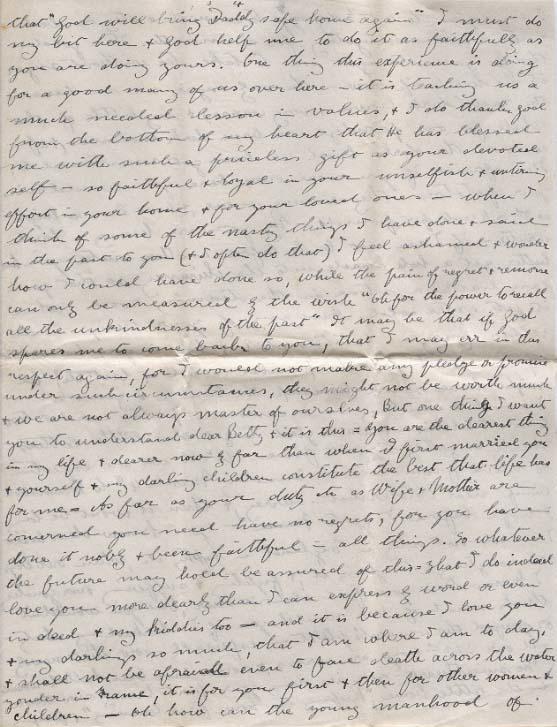 that "God will bring Daddy safe home again" I must do
my bit here & God help me to do it as faithfully as
you are doing yours. One thing this experience is doing
for a good many of us over here – it is teaching us a
much needed lesson in values, & I do thank God
from the bottom of my heart that He has blessed
me with such a priceless gift as your devoted
self – so faithful & loyal in your unselfish & untiring
effort in your home & for your loved ones – when I
think of some of the nasty things I have done & said
in the past to you (& I often do that) I feel ashamed & wonder
how I could have done so, while the pain of regret & remorse
can only be measured by the wish "Oh for the power to recall
all the unkindnesses of the past" It may be that if God
spares me to come back to you, that I may err in this
respect again, for I would not make any pledge or promise
under such circumstances, they might not be worth much
& we are not always master of ourselves, But one thing I want
you to understand dear Betty & it is this = You are the dearest thing
in my life & dearer now by far than when I first married you
& yourself & my darling children constitute the best that life has
for me – As far as your duty as Wife & Mother are
concerned you need have no regrets, for you have
done it nobly & been faithful in all things. So whatever
the future may hold be assured of this = that I do indeed
love you more dearly than I can express by word or even
in deed & my Kiddies too – and it is because I love you
& my darlings so much, that I am where I am to day,
& shall not be afraid even to face death across the water
yonder in France, it is for you first & then for other women &
children – Oh how can the young manhood of